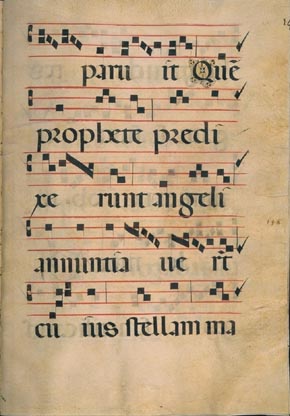 partu it Quē
prophete predi
xe runt angeli
annuntia ue rt̄
cu ius stellam ma